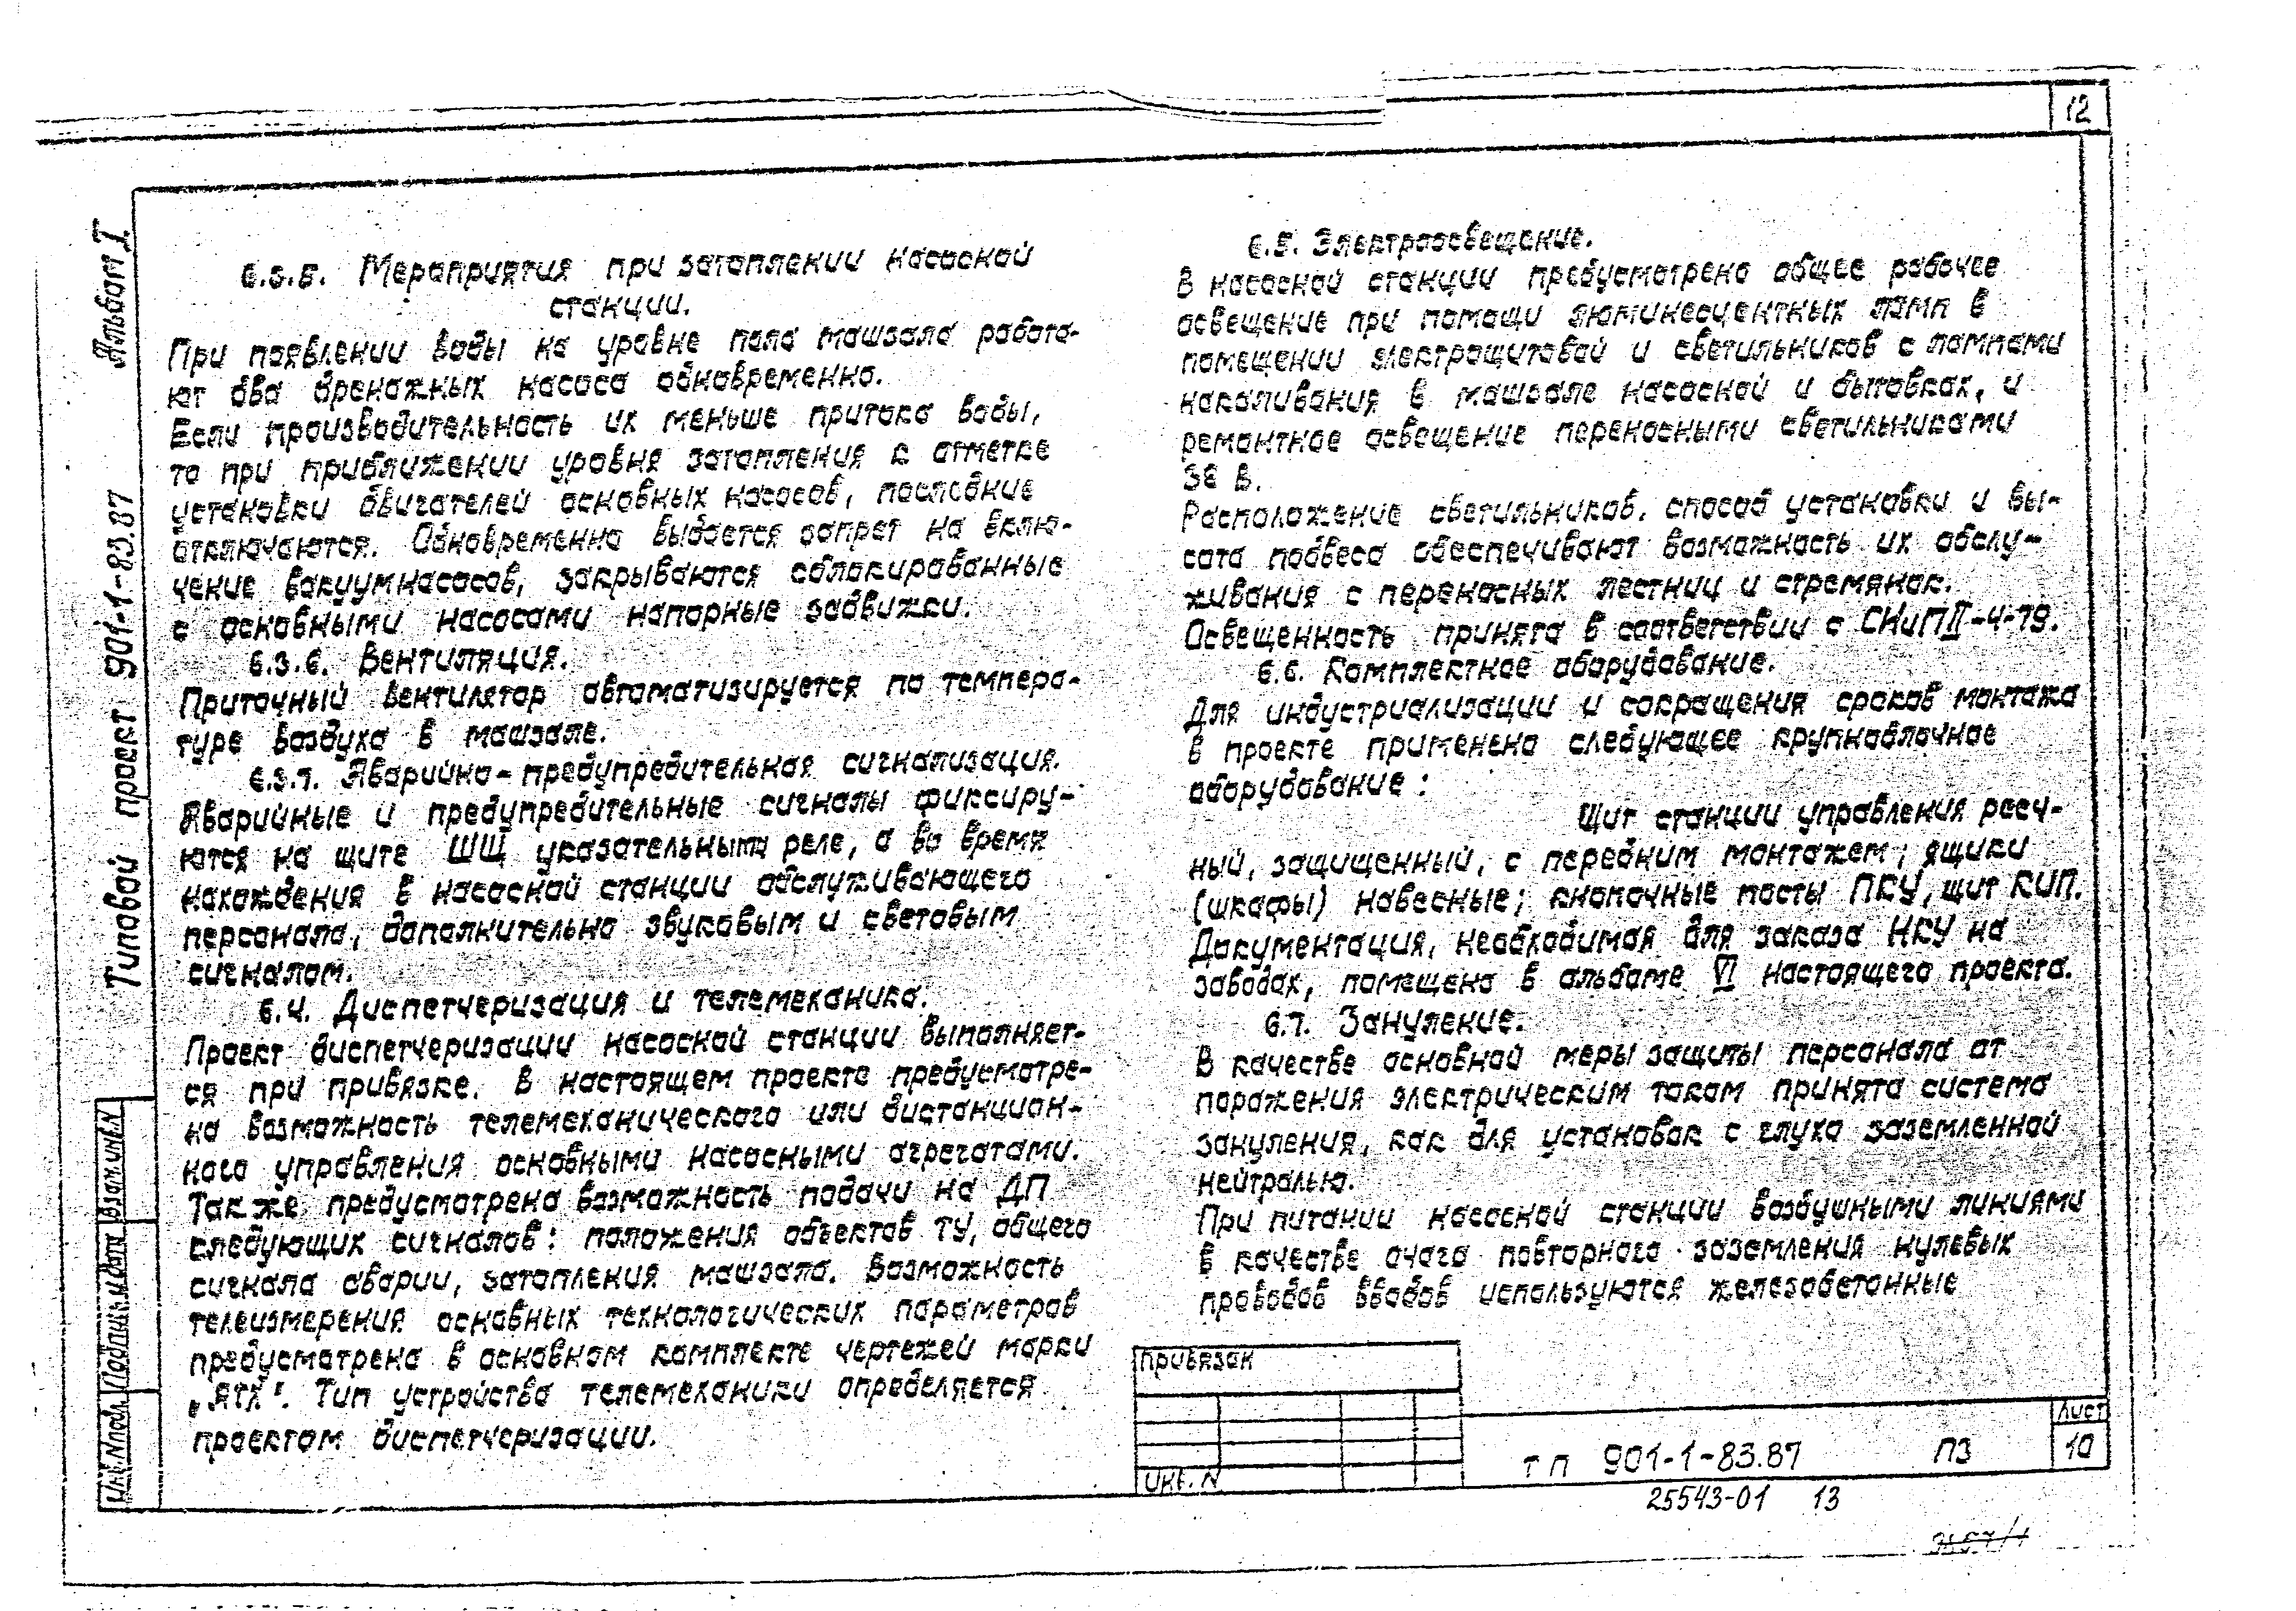 12
Альбом I
Типовой проект 901-1-83.87
6.3.5. Мероприятия при затоплении насосной
станции.
При появлении воды на уровне пола машзала работа-
ют два дренажных насоса одновременно.
Если производительность их меньше притока воды,
то при приближении уровня затопления к отметке
установки двигателей основных насосов, последние
отключаются. Одновременно выдается запрет на вклю-
чение вакуумнасосов, закрываются сблокированные
с основными насосами напорные задвижки.
6.3.6. Вентиляция.
Приточный вентилятор автоматизируется по темпера-
туре воздуха в машзале.
6.3.7. Аварийно-предупредительная сигнализация.
Аварийные и предупредительные сигналы фиксиру-
ются на щите ШЩ указательными реле, а во время
нахождения в насосной станции обслуживающего
персонала, дополнительно звуковым и световым
сигналом.
6.4. Диспетчеризация и телемеханика.
Проект диспетчеризации насосной станции выполняет-
ся при привязке. В настоящем проекте предусмотре-
на возможность телемеханического или дистанцион-
ного управления основными насосными агрегатами.
Также предусмотрена возможность подачи на ДП
следующих сигналов: положения объектов ТУ, общего
сигнала аварии, затопления машзала. Возможность
телеизмерения основных технологических параметров
предусмотрена в основном комплекте чертежей марки
„АТХ". Тип устройства телемеханики определяется
проектом диспетчеризации.
6.5. Электроосвещение.
В насосной станции предусмотрено общее рабочее
освещение при помощи люминесцентных ламп в
помещении электрощитовой и светильников с лампами
накаливания в машзале насосной и бытовках, и
ремонтное освещение переносными светильниками
36 В.
Расположение светильников, способ установки и вы-
сота подвеса обеспечивают возможность их обслу-
живания с переносных лестниц и стремянок.
Освещенность принята в соответствии с СНиП II-4-79.
6.6. Комплектное оборудование.
Для индустриализации и сокращения сроков монтажа
в проекте применено следующее крупноблочное
оборудование:
Щит станции управления рееч-
ный, защищенный, с передним монтажем; ящики
(шкафы) навесные; кнопочные посты ПКУ, щит КИП.
Документация, необходимая для заказа НКУ на
заводах, помещена в альбоме VI настоящего проекта.
6.7. Зануление.
В качестве основной меры защиты персонала от
поражения электрическим током принята система
зануления, как для установок с глухо заземленной
нейтралью.
При питании насосной станции воздушными линиями
в качестве очага повторного заземления нулевых
проводов вводов используются железобетонные
Привязан
Инв. N
ТП 901-1-83.87 ПЗ
Лист
10
25543-01 13
Инв.N подл. Подпись и дата Взам.инв.N